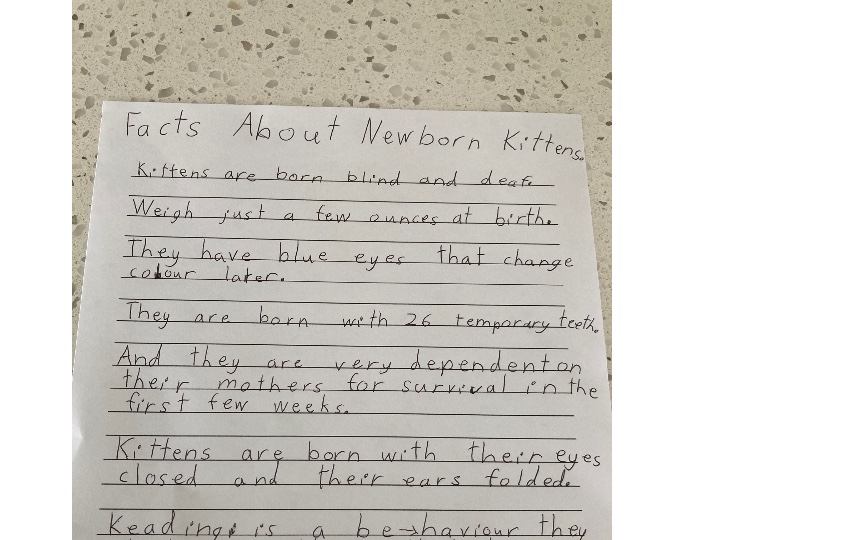 Facts About Newborn Kittens.
Kittens are born blind and deaf.
Weigh just a few ounces at birth.
They have blue eyes that change
colour later.
They are born with 26 temporary teeth.
And they are very dependent on
their mothers for survival in the
first few weeks.
Kittens are born with their eyes
closed and their ears folded.
Keading is a behaviour they